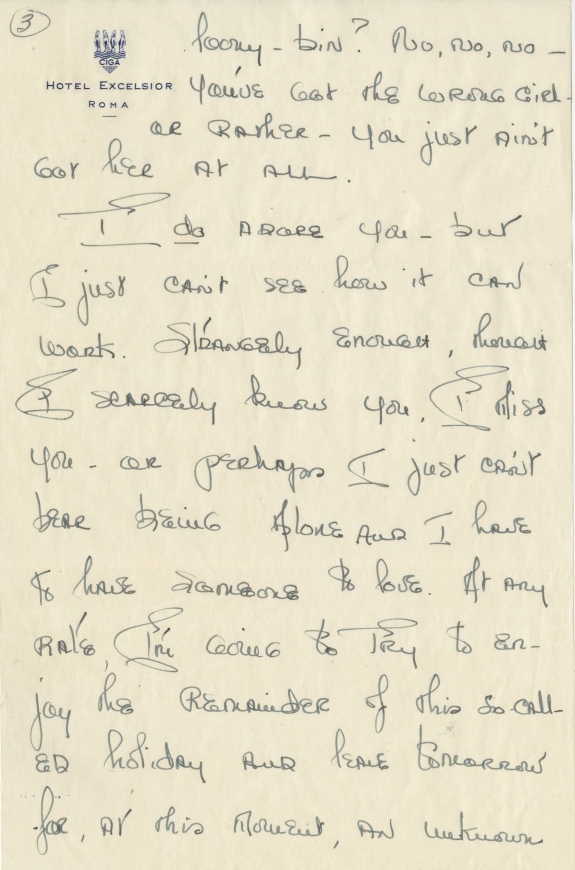 3
CIGA
HOTEL EXCELSIOR
ROMA
loony-bin? No, no, no -
You've got the wrong girl -
or rather - you just ain't
got her at all.
I do adore you - but
I just can't see how it can
work. Strangely enough, though
I scarcely know you, I miss
you - or perhaps I just can't
bear being alone and I have
to have someone to love. At any
rate, I'm going to try to en-
joy the remainder of this so-call-
ed holiday and leave tomorrow
for, at this moment, an unknown